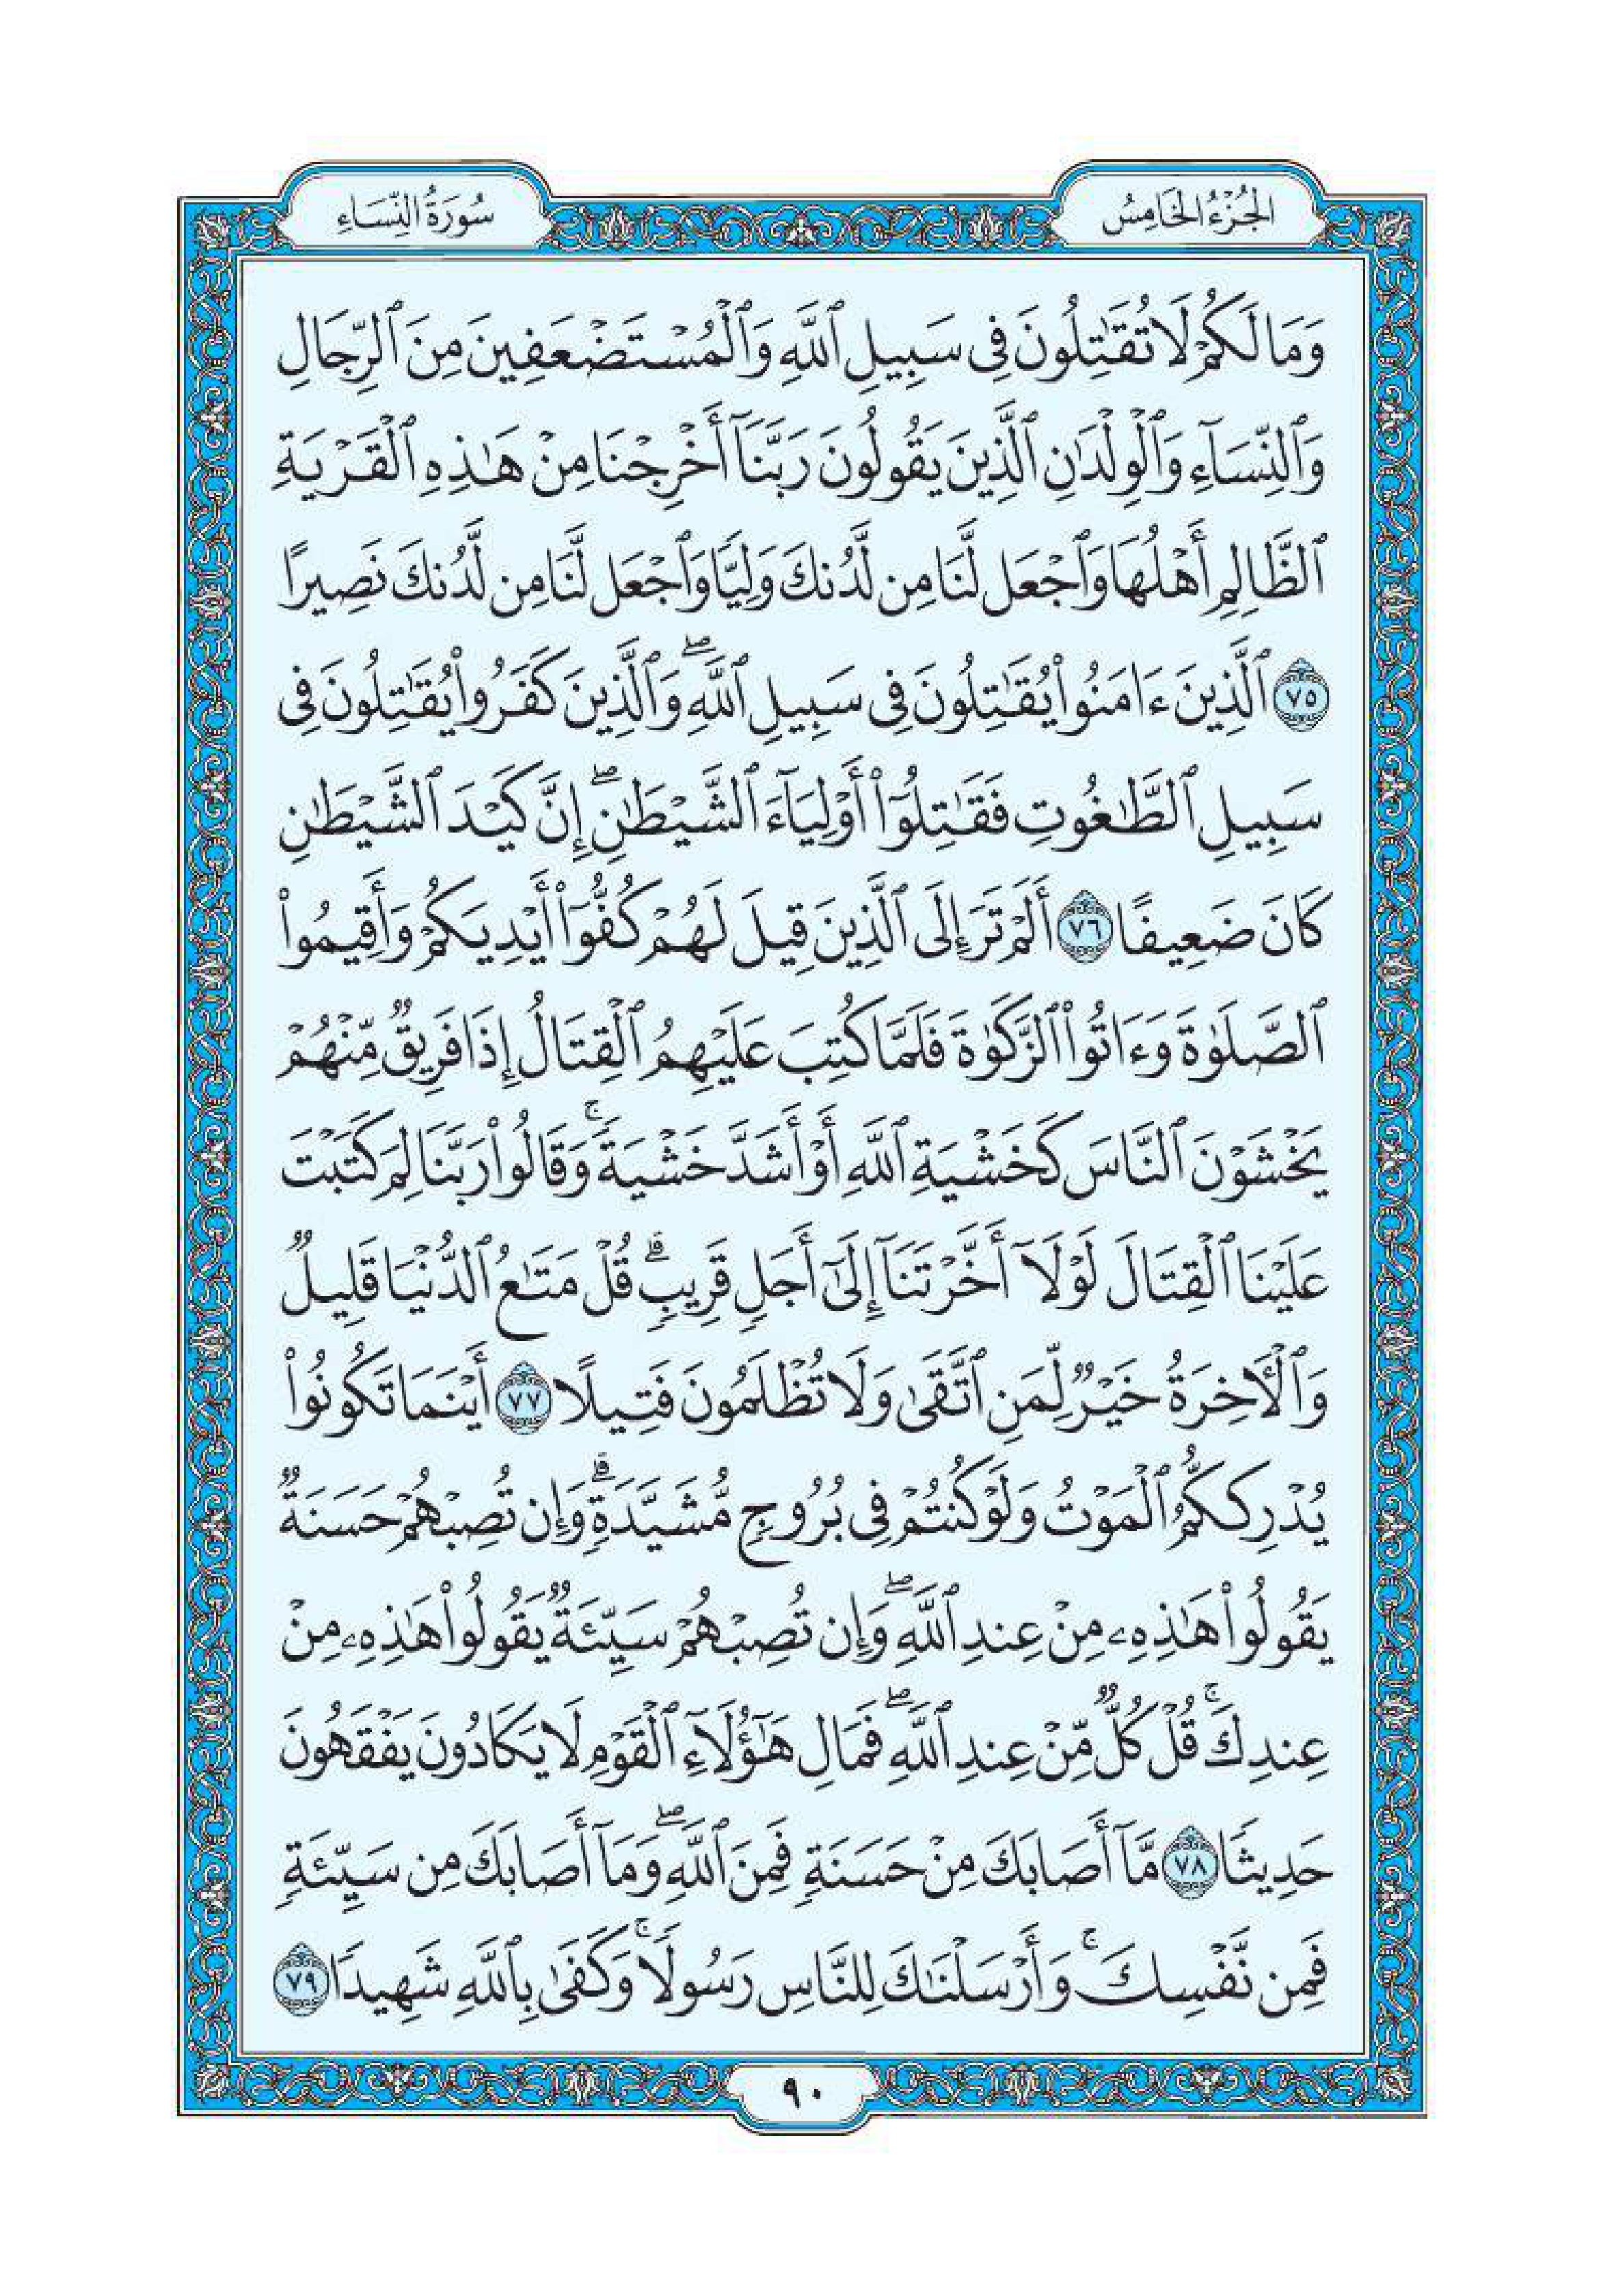 الجُزْءُ الخَامِسُ
سُورَةُ النِّسَاءِ
وَمَا لَكُمْ لَا تُقَٰتِلُونَ فِي سَبِيلِ ٱللَّهِ وَٱلْمُسْتَضْعَفِينَ مِنَ ٱلرِّجَالِ
وَٱلنِّسَآءِ وَٱلْوِلْدَٰنِ ٱلَّذِينَ يَقُولُونَ رَبَّنَآ أَخْرِجْنَا مِنْ هَٰذِهِ ٱلْقَرْيَةِ
ٱلظَّالِمِ أَهْلُهَا وَٱجْعَل لَّنَا مِن لَّدُنكَ وَلِيًّا وَٱجْعَل لَّنَا مِن لَّدُنكَ نَصِيرًا
٧٥ ٱلَّذِينَ ءَامَنُوا۟ يُقَٰتِلُونَ فِي سَبِيلِ ٱللَّهِۖ وَٱلَّذِينَ كَفَرُوا۟ يُقَٰتِلُونَ فِي
سَبِيلِ ٱلطَّٰغُوتِ فَقَٰتِلُوٓا۟ أَوْلِيَآءَ ٱلشَّيْطَٰنِۖ إِنَّ كَيْدَ ٱلشَّيْطَٰنِ
كَانَ ضَعِيفًا ٧٦ أَلَمْ تَرَ إِلَى ٱلَّذِينَ قِيلَ لَهُمْ كُفُّوٓا۟ أَيْدِيَكُمْ وَأَقِيمُوا۟
ٱلصَّلَوٰةَ وَءَاتُوا۟ ٱلزَّكَوٰةَ فَلَمَّا كُتِبَ عَلَيْهِمُ ٱلْقِتَالُ إِذَا فَرِيقٌ مِّنْهُمْ
يَخْشَوْنَ ٱلنَّاسَ كَخَشْيَةِ ٱللَّهِ أَوْ أَشَدَّ خَشْيَةًۚ وَقَالُوا۟ رَبَّنَا لِمَ كَتَبْتَ
عَلَيْنَا ٱلْقِتَالَ لَوْلَآ أَخَّرْتَنَآ إِلَىٰٓ أَجَلٍ قَرِيبٍۗ قُلْ مَتَٰعُ ٱلدُّنْيَا قَلِيلٌ
وَٱلْأَخِرَةُ خَيْرٌ لِّمَنِ ٱتَّقَىٰ وَلَا تُظْلَمُونَ فَتِيلًا ٧٧ أَيْنَمَا تَكُونُوا۟
يُدْرِككُّمُ ٱلْمَوْتُ وَلَوْ كُنتُمْ فِي بُرُوجٍ مُّشَيَّدَةٍۗ وَإِن تُصِبْهُمْ حَسَنَةٌ
يَقُولُوا۟ هَٰذِهِۦ مِنْ عِندِ ٱللَّهِۖ وَإِن تُصِبْهُمْ سَيِّئَةٌ يَقُولُوا۟ هَٰذِهِۦ مِنْ
عِندِكَۚ قُلْ كُلٌّ مِّنْ عِندِ ٱللَّهِۖ فَمَالِ هَٰٓؤُلَآءِ ٱلْقَوْمِ لَا يَكَادُونَ يَفْقَهُونَ
حَدِيثًا ٧٨ مَّآ أَصَابَكَ مِنْ حَسَنَةٍ فَمِنَ ٱللَّهِۖ وَمَآ أَصَابَكَ مِن سَيِّئَةٍ
فَمِن نَّفْسِكَۚ وَأَرْسَلْنَٰكَ لِلنَّاسِ رَسُولًاۚ وَكَفَىٰ بِٱللَّهِ شَهِيدًا ٧٩
٩٠